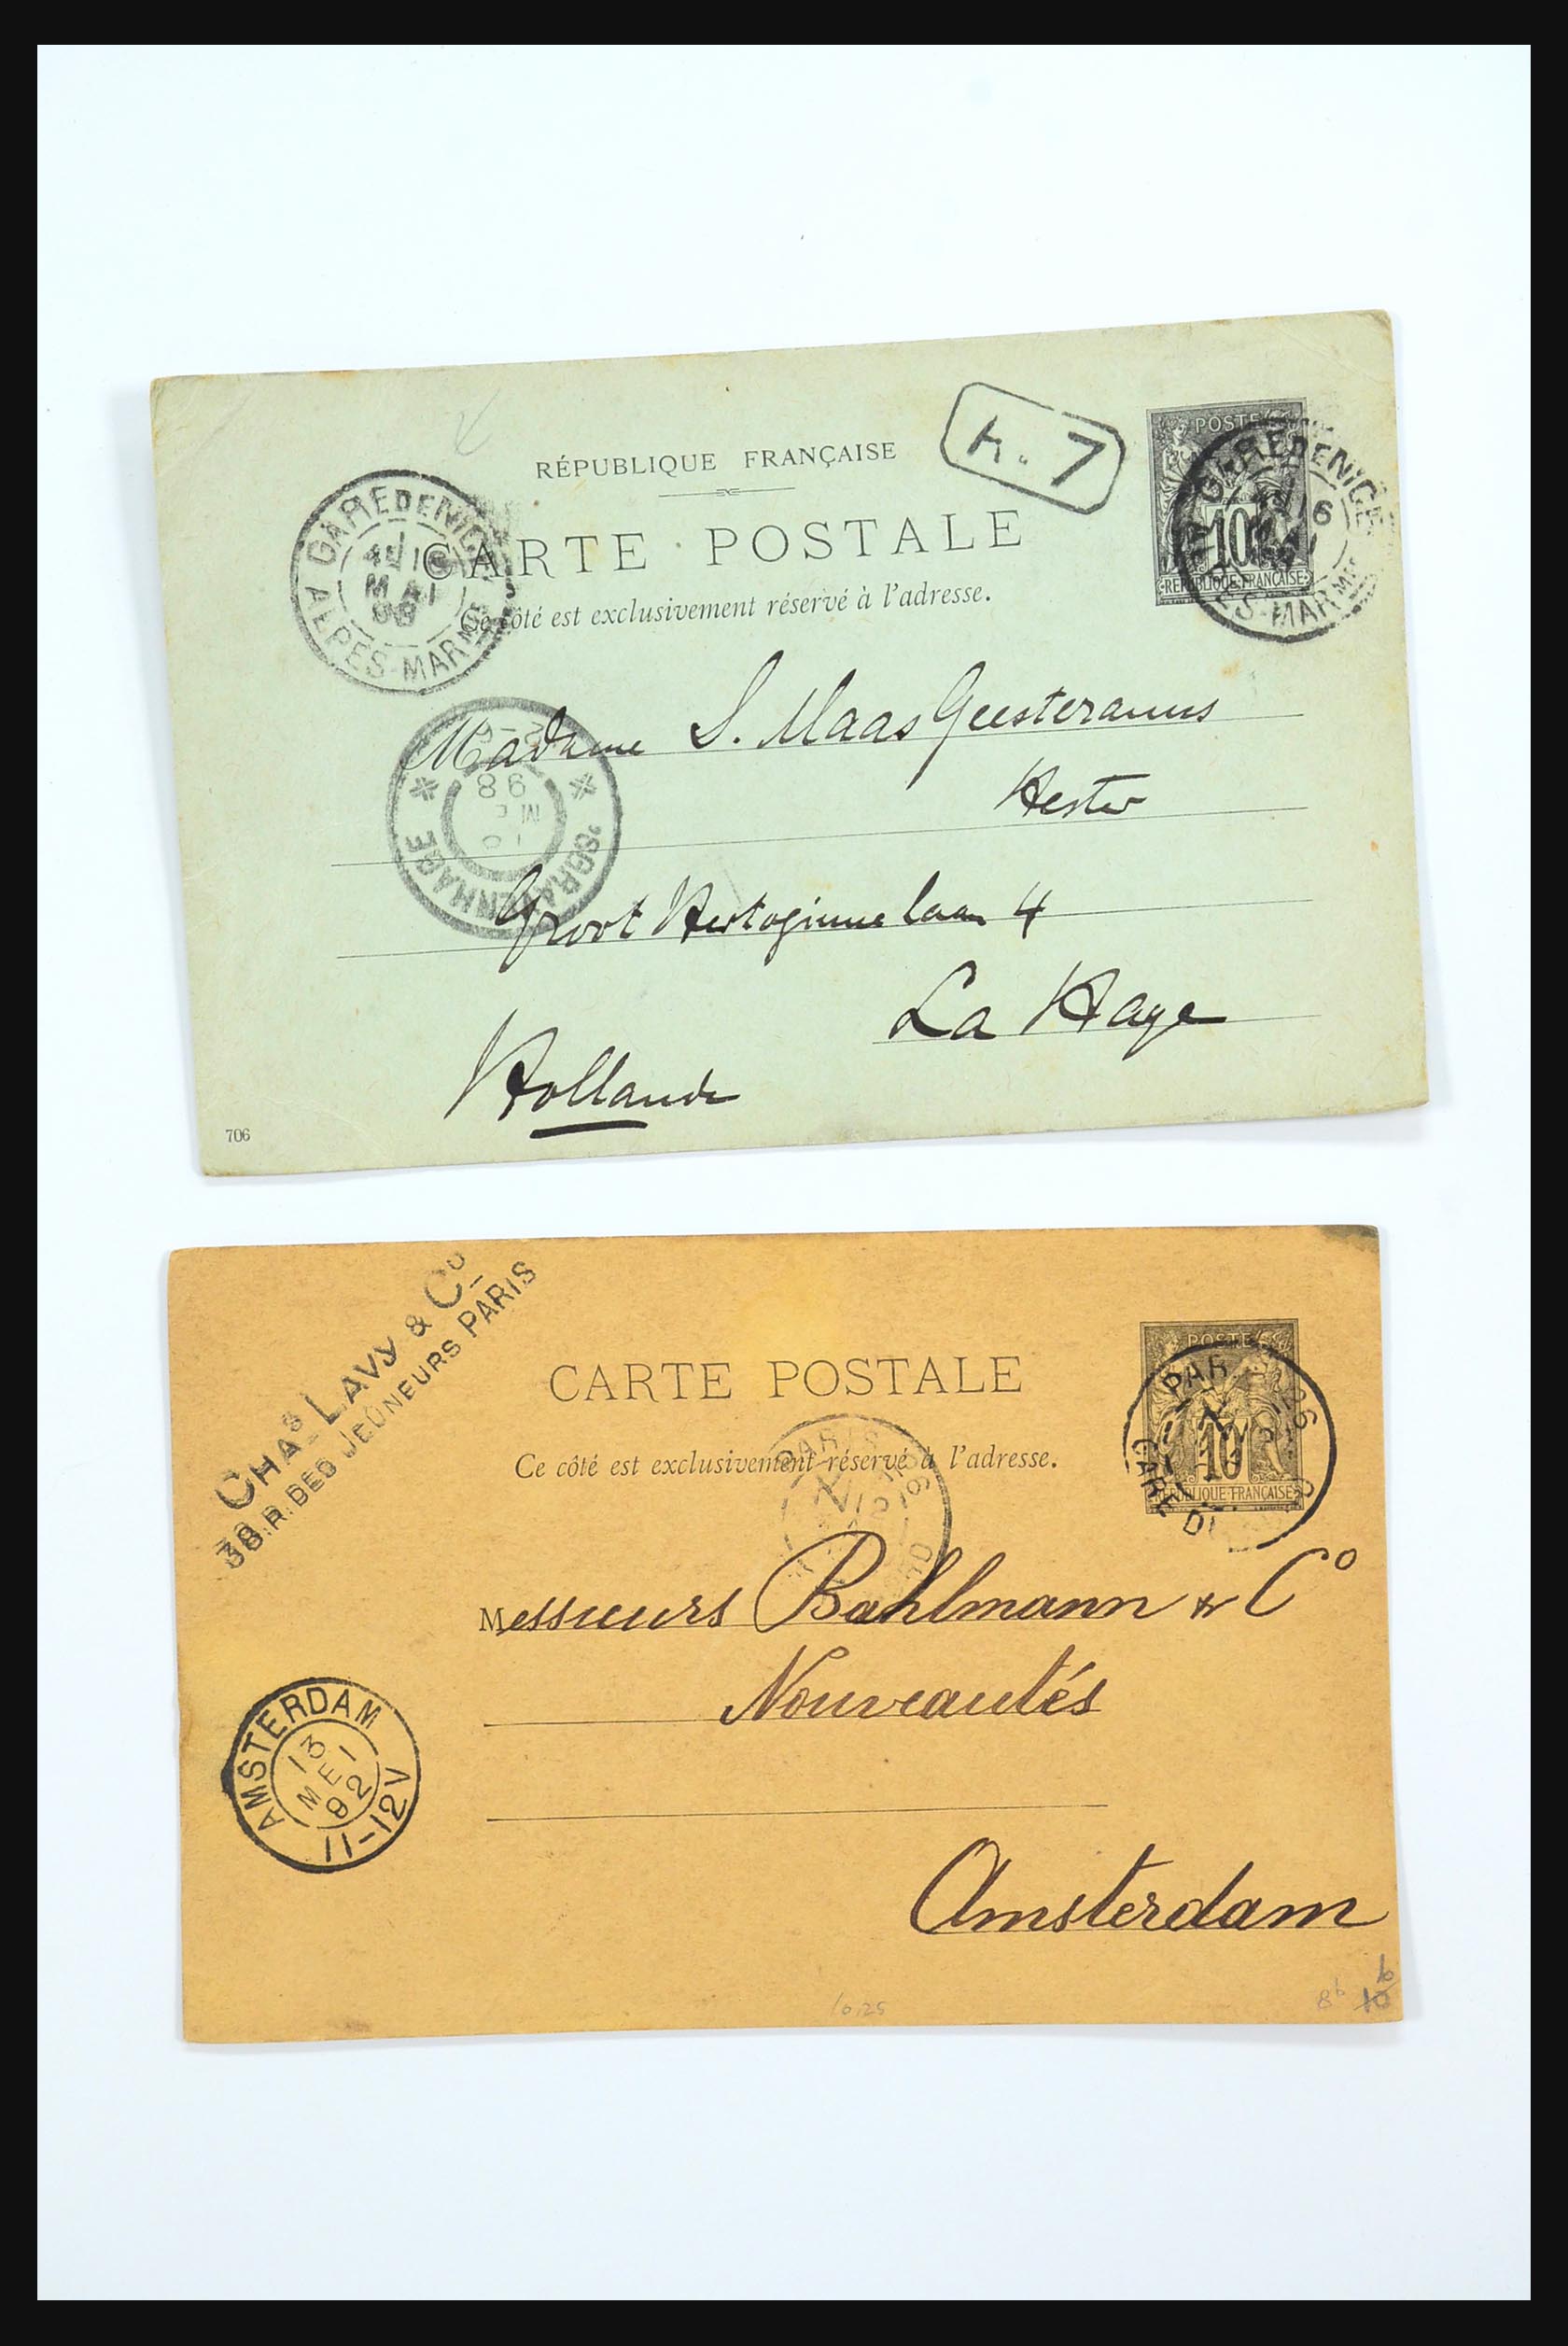 RÉPUBLIQUE FRANÇAISE
CARTE POSTALE
Ce côté est exclusivement réservé à l'adresse.
h. 7
POSTE
10
REPUBLIQUE FRANÇAISE
GARE DE NICE
16
ALPES-MARMES
GARE DE NICE
MAI
98
ALPES-MARMES
'SGRAVENHAGE
98
Madame S. Maas Geesteranus
Hester
Groot Hertoginne laan 4
La Haye
Hollande
706
CHAS LAVY & Co
38.R.DES JEÛNEURS PARIS
CARTE POSTALE
Ce côté est exclusivement réservé à l'adresse.
POSTE
10
REPUBLIQUE FRANÇAISE
PARIS
GARE DU
Messieurs Bahlmann & Co
Nouveautés
AMSTERDAM
13
MEI
92
11-12V
Amsterdam
10,25
8b
10